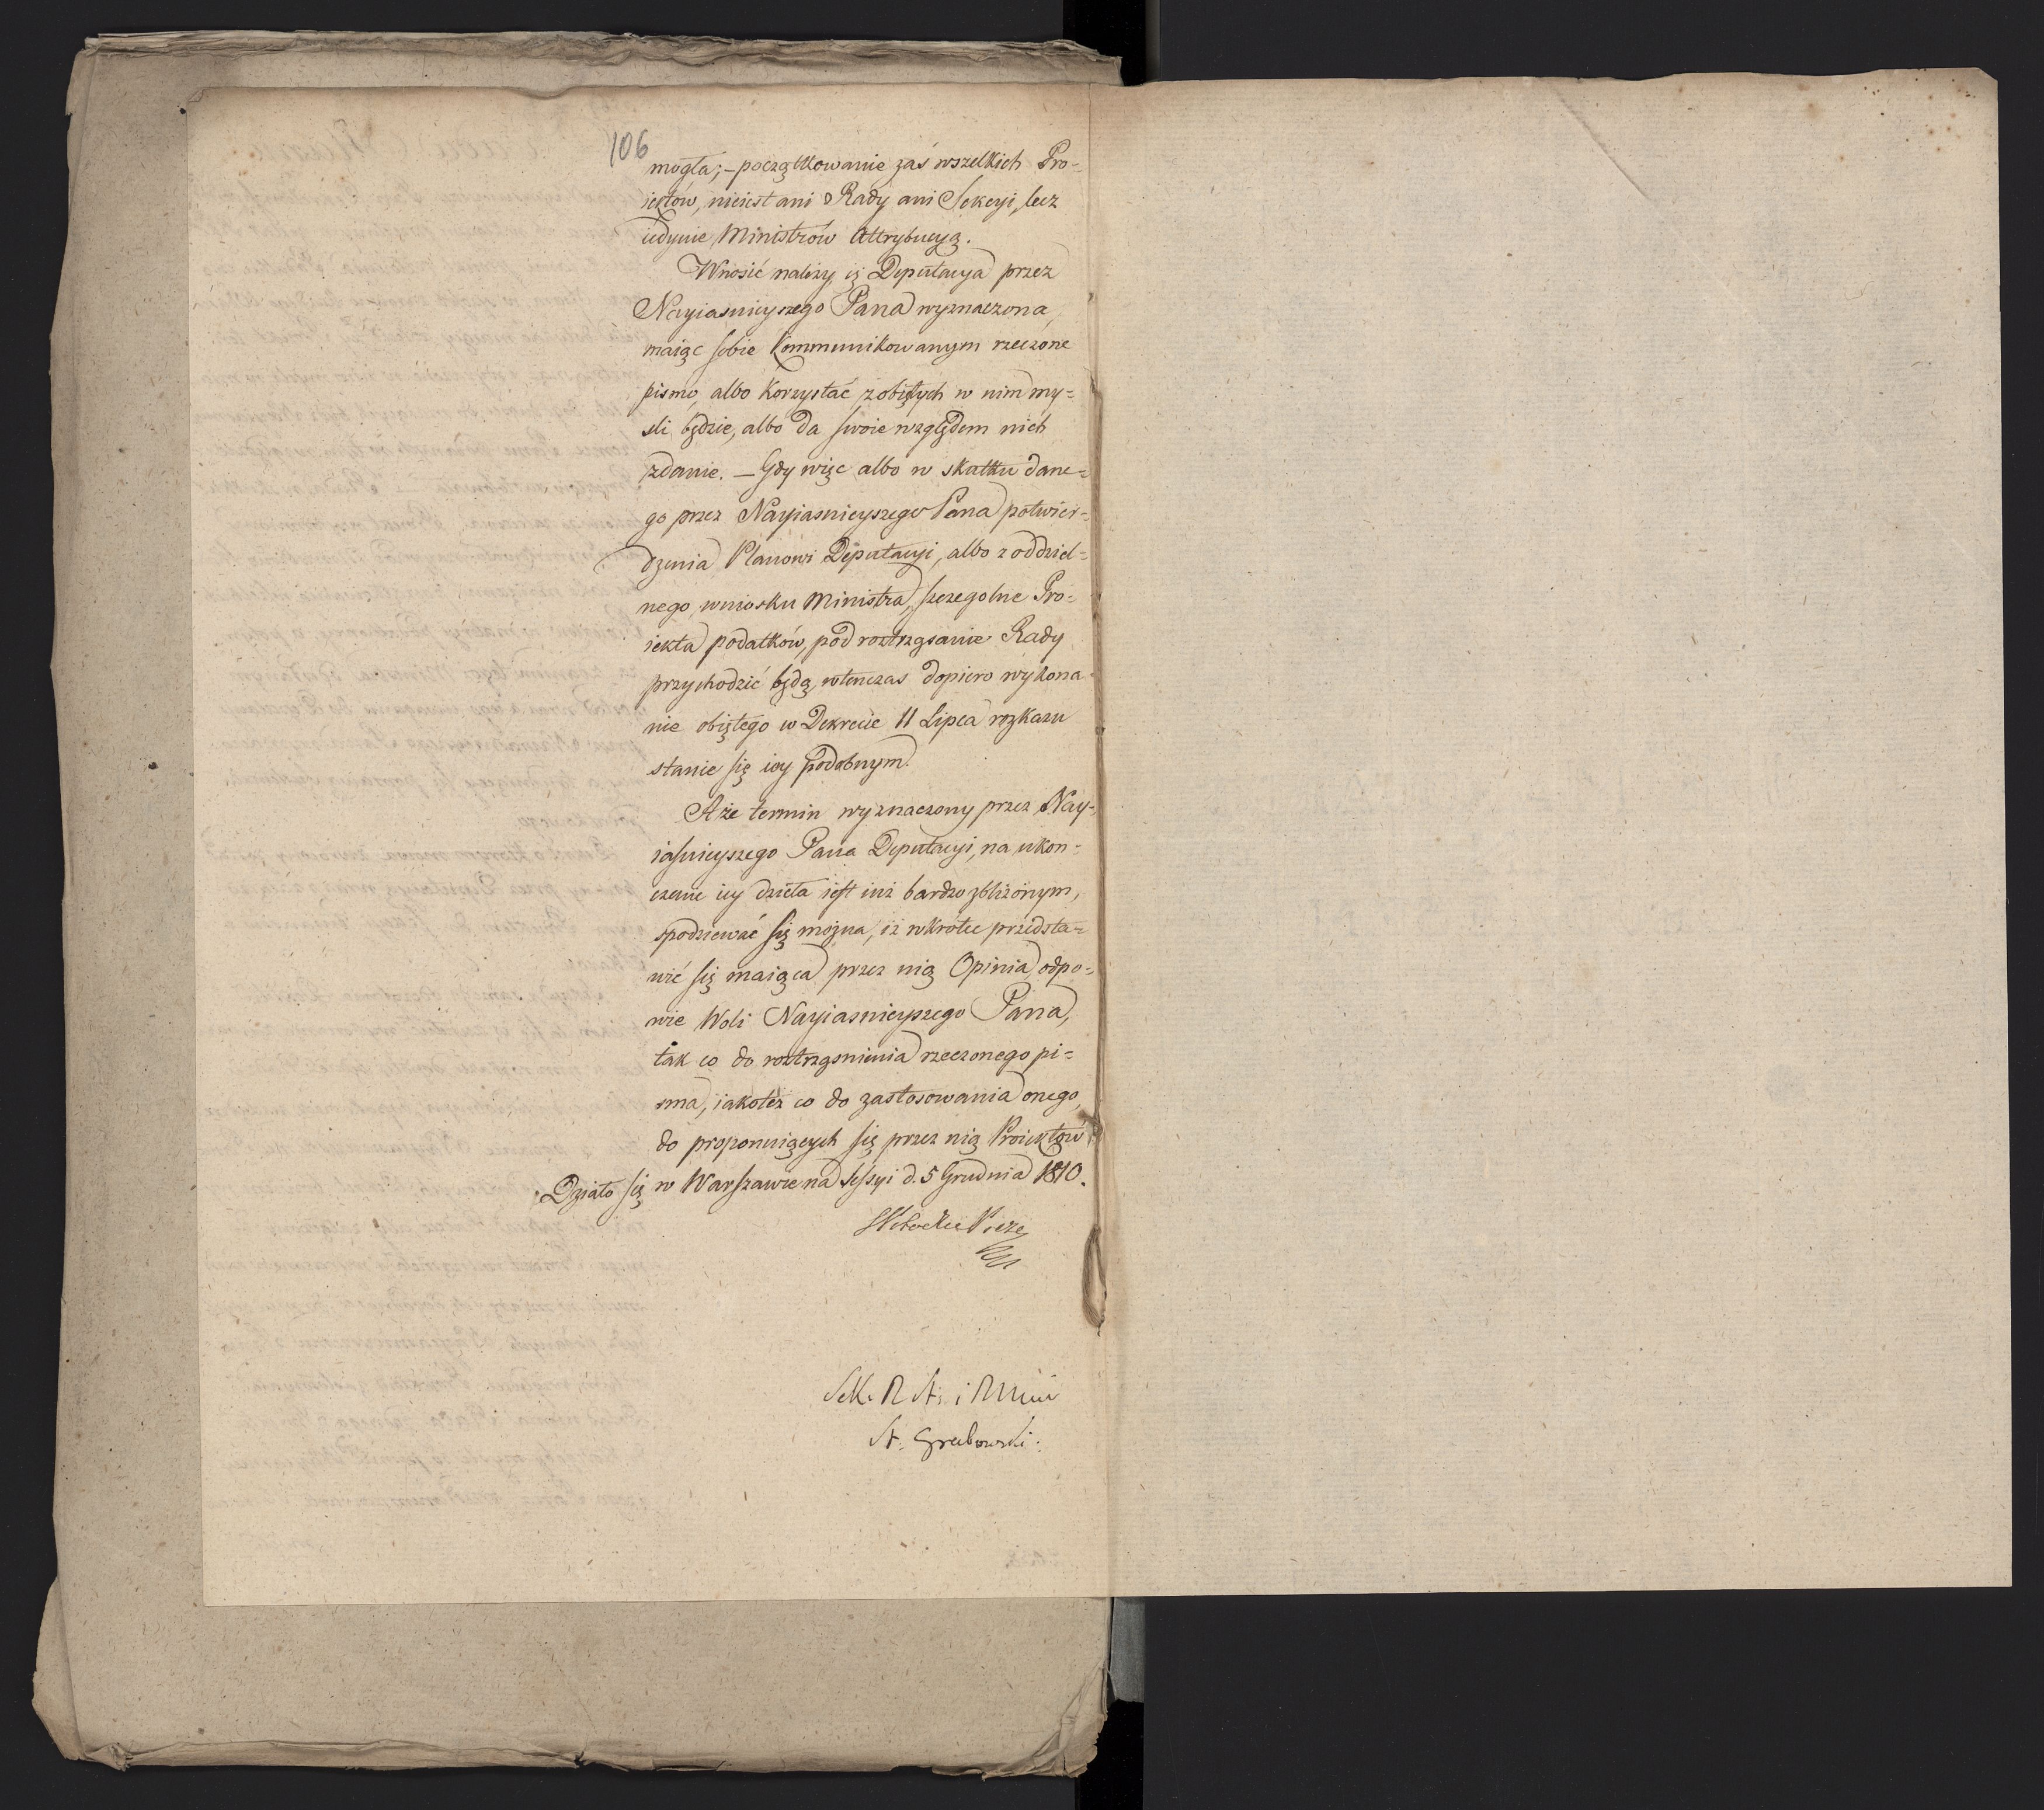 106
mogła; – początkowanie zaś wszelkich Pro-
iektów, nieiest ani Rady ani Sekcyi, lecz
iedynie Ministrów Attrybucyą.
Wnosić należy iż Deputacya przez
Nayiasnieyszego Pana wyznaczona,
maiąc sobie kommunikowanym rzeczone
pismo, albo korzystać z obiętych w nim my=
sli będzie, albo da swoie względem nich
zdanie. – Gdy więc albo w skutku dane=
go przez Nayiasnieyszego Pana potwier=
dzenia Planowi Deputacyi, albo z oddziel=
nego wniosku Ministra, szczegolne Pro=
iekta podatków, pod roztrząsanie Rady
przychodzić będą, wtenczas dopiero wykona-
nie obiętego w Dekrecie 11 Lipca rozkazu
stanie się iey podobnym.
A że termin wyznaczony przez Nay=
iaśnieyszego Pana Deputacyi, na ukoń=
czenie iey dzieła iest iuż bardzo zbliżonym,
spodziewać się można, iż wkrótce przedsta=
wić się maiąca przez nią Opinia odpo=
wie Woli Nayiasnieyszego Pana,
tak co do roztrząsnienia rzeczonego pi=
sma, iakoteż co do zastosowania onego,
do proponuiących się przez nią Proiektów
Działo się w Warszawie na Sessyi d. 5 Grudnia 1810.
Sek: R St: i R Min
St: Grabowski: